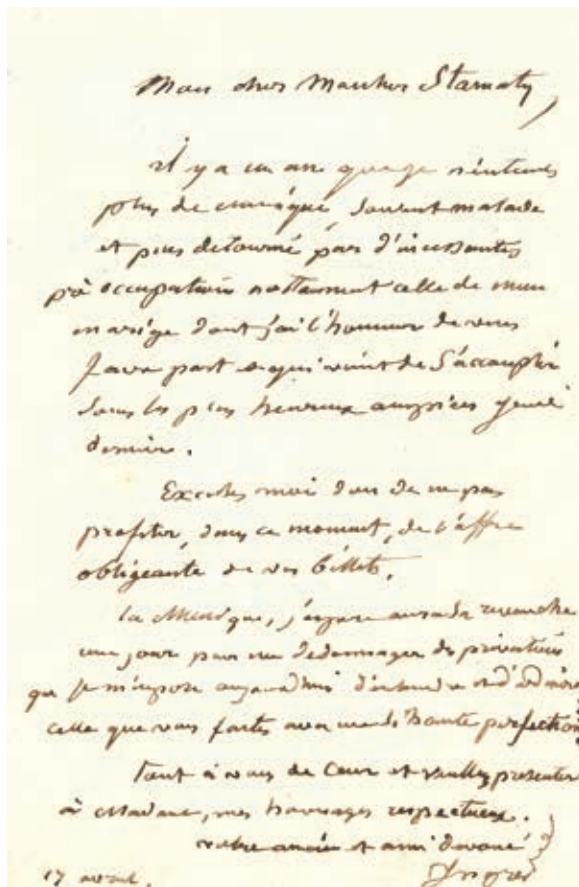 Mon cher Monsieur Stamaty,
il y a un an que je n'entends
plus de musique, souvent malade
et puis detourné par d'incessantes
préoccupations nottamment celle de mon
mariage dont j'ai l'honneur de vous
faire part et qui vient de s'accomplir
sous les plus heureux auspices jeudi
dernier.
Excusez moi donc de ne pas
profiter, dans ce moment, de l'offre
obligeante de vos billets.
la Musique, j'espère aura sa revanche
un jour pour me dedommager des privations
que je m'impose aujourd'hui d'entendre et d'admirer
celle que vous faites avec une si haute perfection.
Tout à vous de Coeur et veuillez presenter
à Madame, mes hommages respectueux.
votre ancien et ami devoué
Ingres
17 avril.